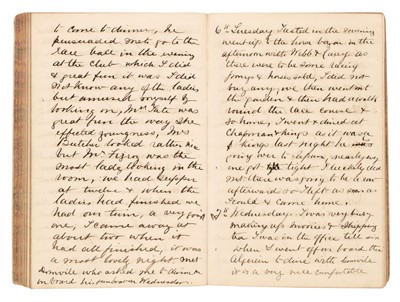 to come to dinner, he
persuaded me to go to the
race ball in the evening
at the club which I did
& great fun it was I did
not know any of the ladies
but amused myself by
looking on, Mrs was
great fun the way she
affected youngness, Mrs
Butcher looked rather nice
but Mrs was the
most lady looking in the
room, we had supper
at twelve & when the
ladies had finished we
had our turn, a very good
one, I came away at
about two when it
had all finished, it was
a most lovely night met
who asked me to dine
on board his on Wednesday.
6th. Tuesday. Tested in the morning
went up & the horse bazar in the
afternoon with Webb & as
there were to be some
ponys & horses sold, I did not
buy any, we then went out
the garden & then had a walk
round the race course & 
so home, I went & dined at
Chapman & Kings as it was
Kings last night he
going over to
we got tight I luckily did
not there was going to be a row
afterwards so I left as soon as
I could & came home.
7th. Wednesday. I was very busy
making up invoices & shipping
tea I was in the office till six
when I went off on board the
Algerine to dine with
it is a very nice comfortable